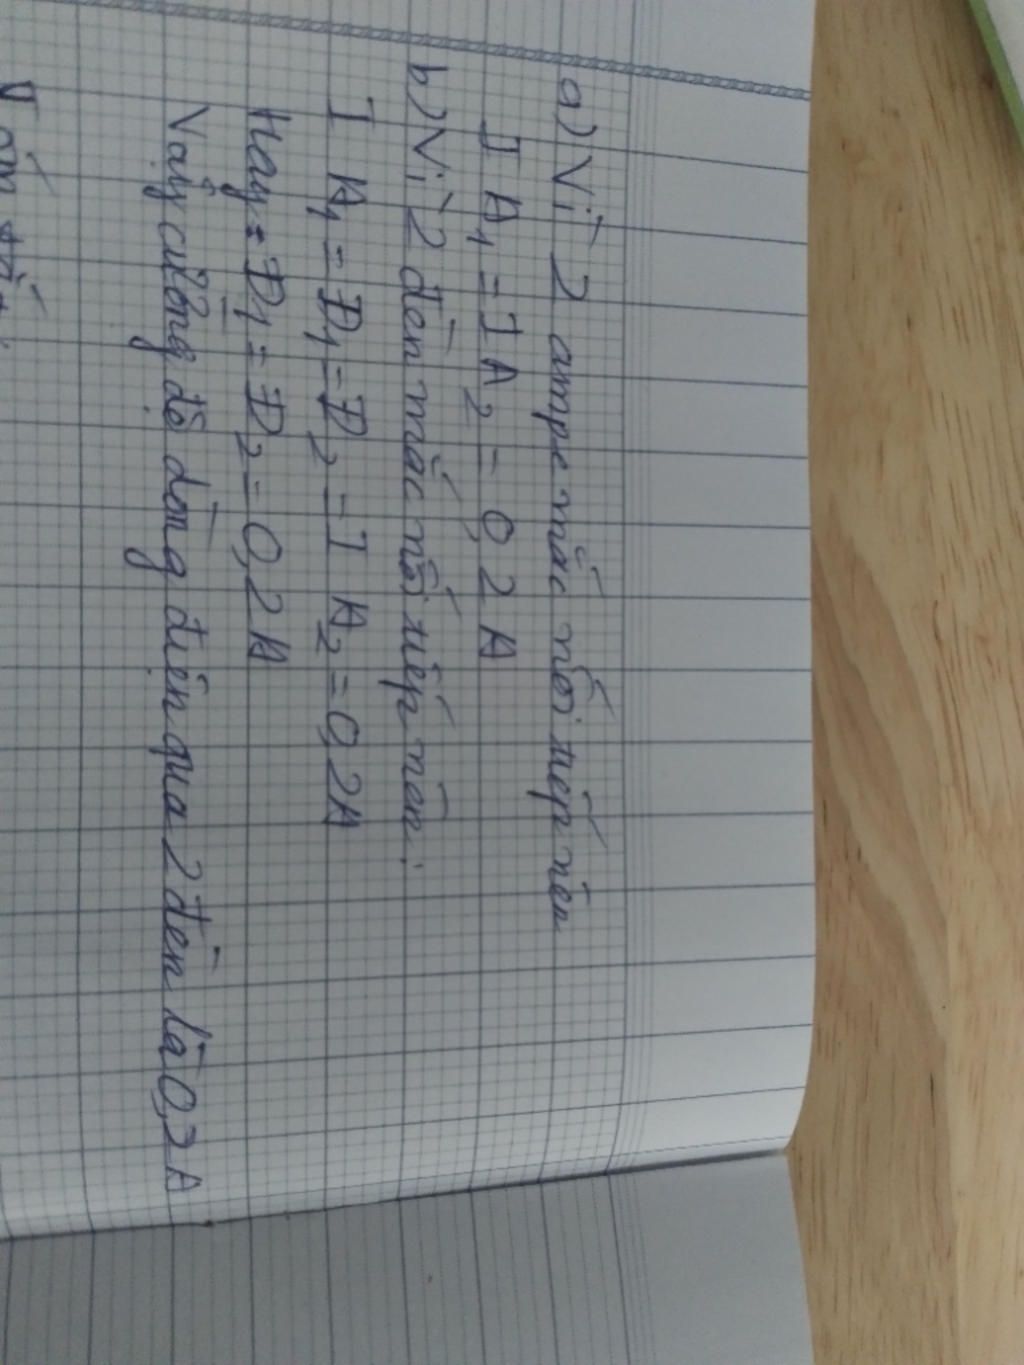 a) Vì 2 ampe mắc nối tiếp nên
I A₁ = I A₂ = 0,2 A
b) Vì 2 đèn mắc nối tiếp nên:
I A₁ = Đ₁ = Đ₂ = I A₂ = 0,2A
Hay: Đ₁ = Đ₂ = 0,2A
Vậy cường độ dòng điện qua 2 đèn là 0,2 A